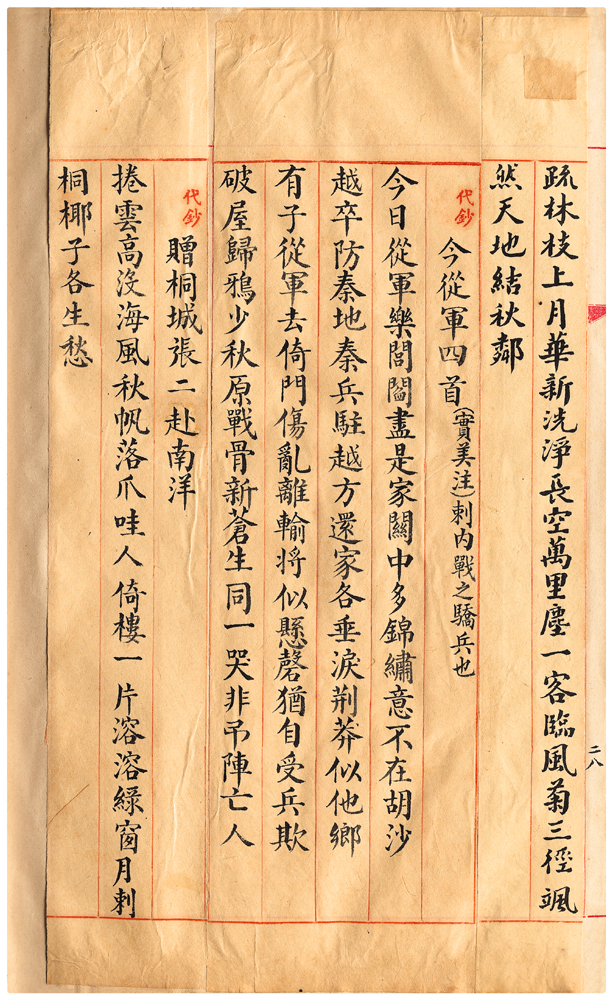 疏林枝上月華新洗淨長空萬里塵一客臨風菊三徑颯
然天地結秋鄰
代鈔
今從軍四首(實美注)刺內戰之驕兵也
今日從軍樂閭閻盡是家關中多錦繡意不在胡沙
越卒防秦地秦兵駐越方還家各垂淚荆莽似他鄉
有子從軍去倚門傷亂離輸將似懸磬猶自受兵欺
破屋歸鴉少秋原戰骨新蒼生同一哭非吊陣亡人
代鈔
贈桐城張二赴南洋
捲雲高没海風秋帆落爪哇人倚樓一片溶溶綠窗月刺
桐椰子各生愁
二八